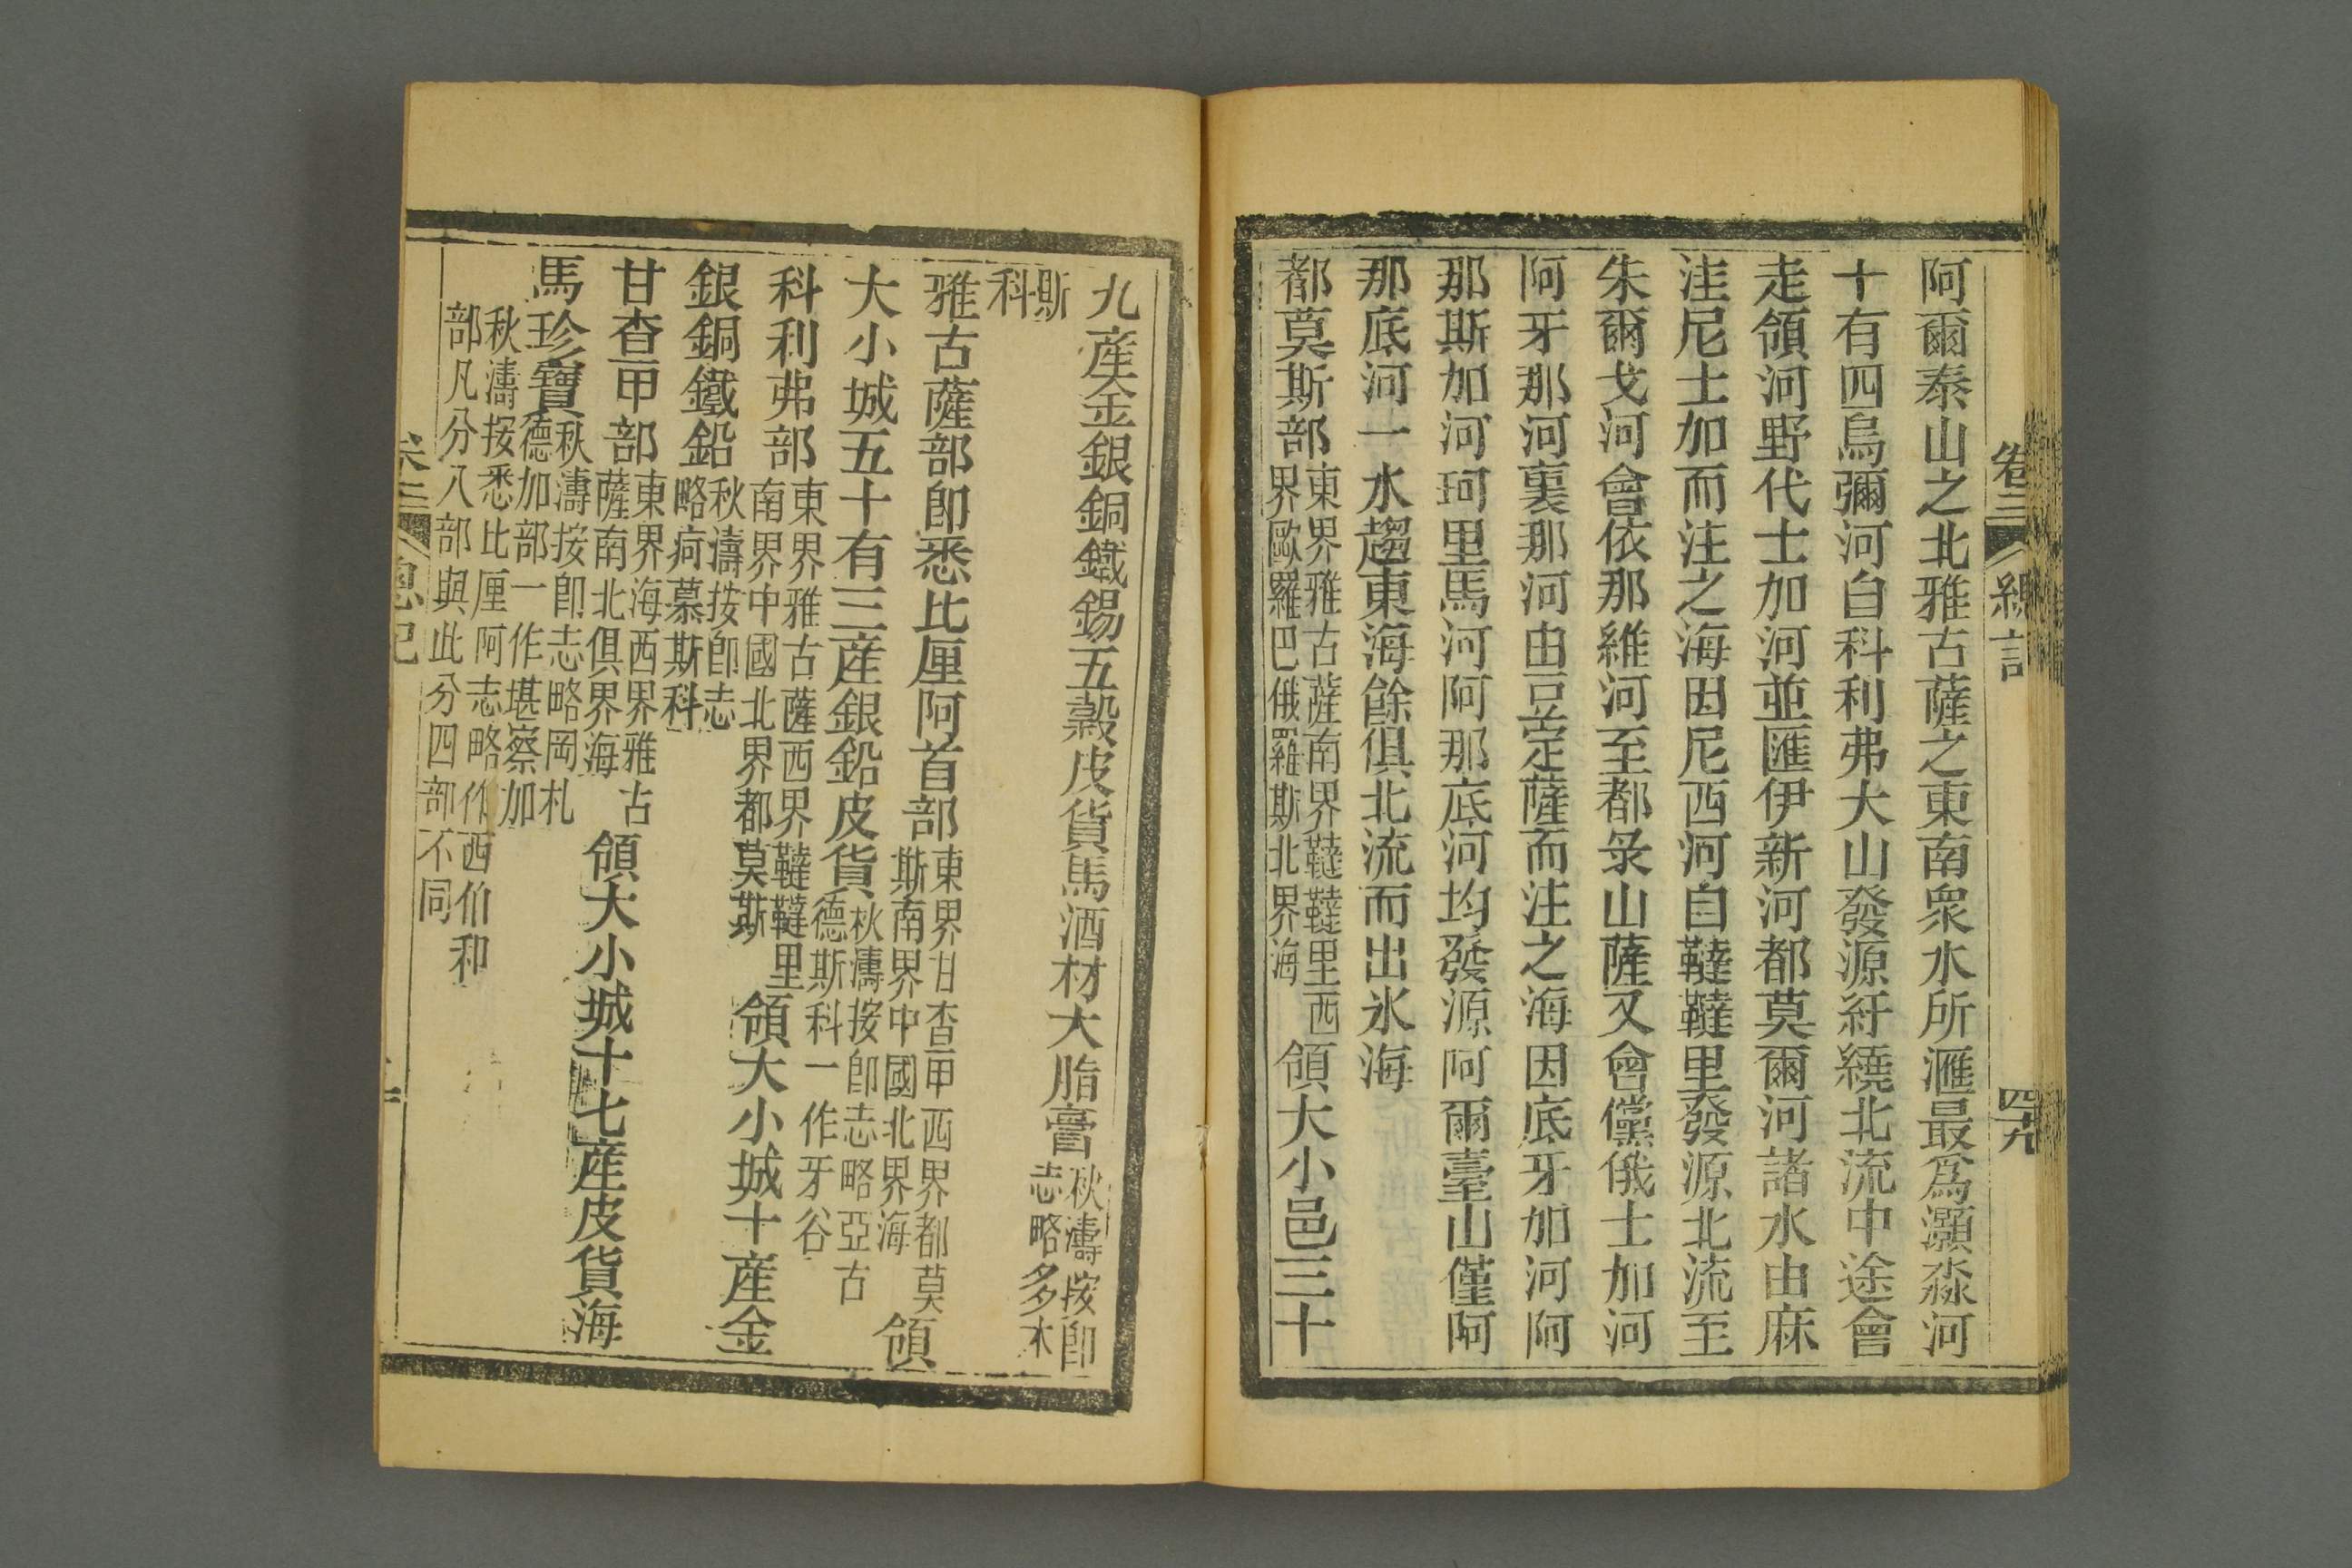 卷三 總記 四九
阿爾泰山之北雅古薩之東南衆水所滙最爲灝淼河
十有四烏彌河自科利弗大山發源紆繞北流中途會
走領河野代士加河並匯伊新河都莫爾河諸水由麻
洼尼士加而注之海因尼西河自韃韃里發源北流至
朱爾戈河會依那維河至都彔山薩又會儻俄士加河
阿牙那河裏那河由豆萣薩而注之海因底牙加河阿
那斯加河珂里馬河阿那底河均發源阿爾臺山僅阿
那底河一水趨東海餘俱北流而出氷海
都莫斯部東界雅古薩南界韃韃里西界歐羅巴俄羅斯北界海領大小邑三十
九產金銀銅鐵錫五穀皮貨馬酒材大脂膏秋濤按卽志略多木
斯科
雅古薩部卽悉比厘阿首部東界甘查甲西界都莫斯南界中國北界海領
大小城五十有三產銀鉛皮貨秋濤按卽志略亞古德斯科一作牙谷
科利弗部東界雅古薩西界韃韃里南界中國北界都莫斯領大小城十產金
銀銅鐵鉛秋濤按卽志略疴慕斯科
甘查甲部東界海西界雅古薩南北俱界海領大小城十七產皮貨海
馬珍寶秋濤按卽志略岡札德加部一作堪察加
秋濤按悉比厘阿志略作西伯和
部凡分八部與此分四部不同